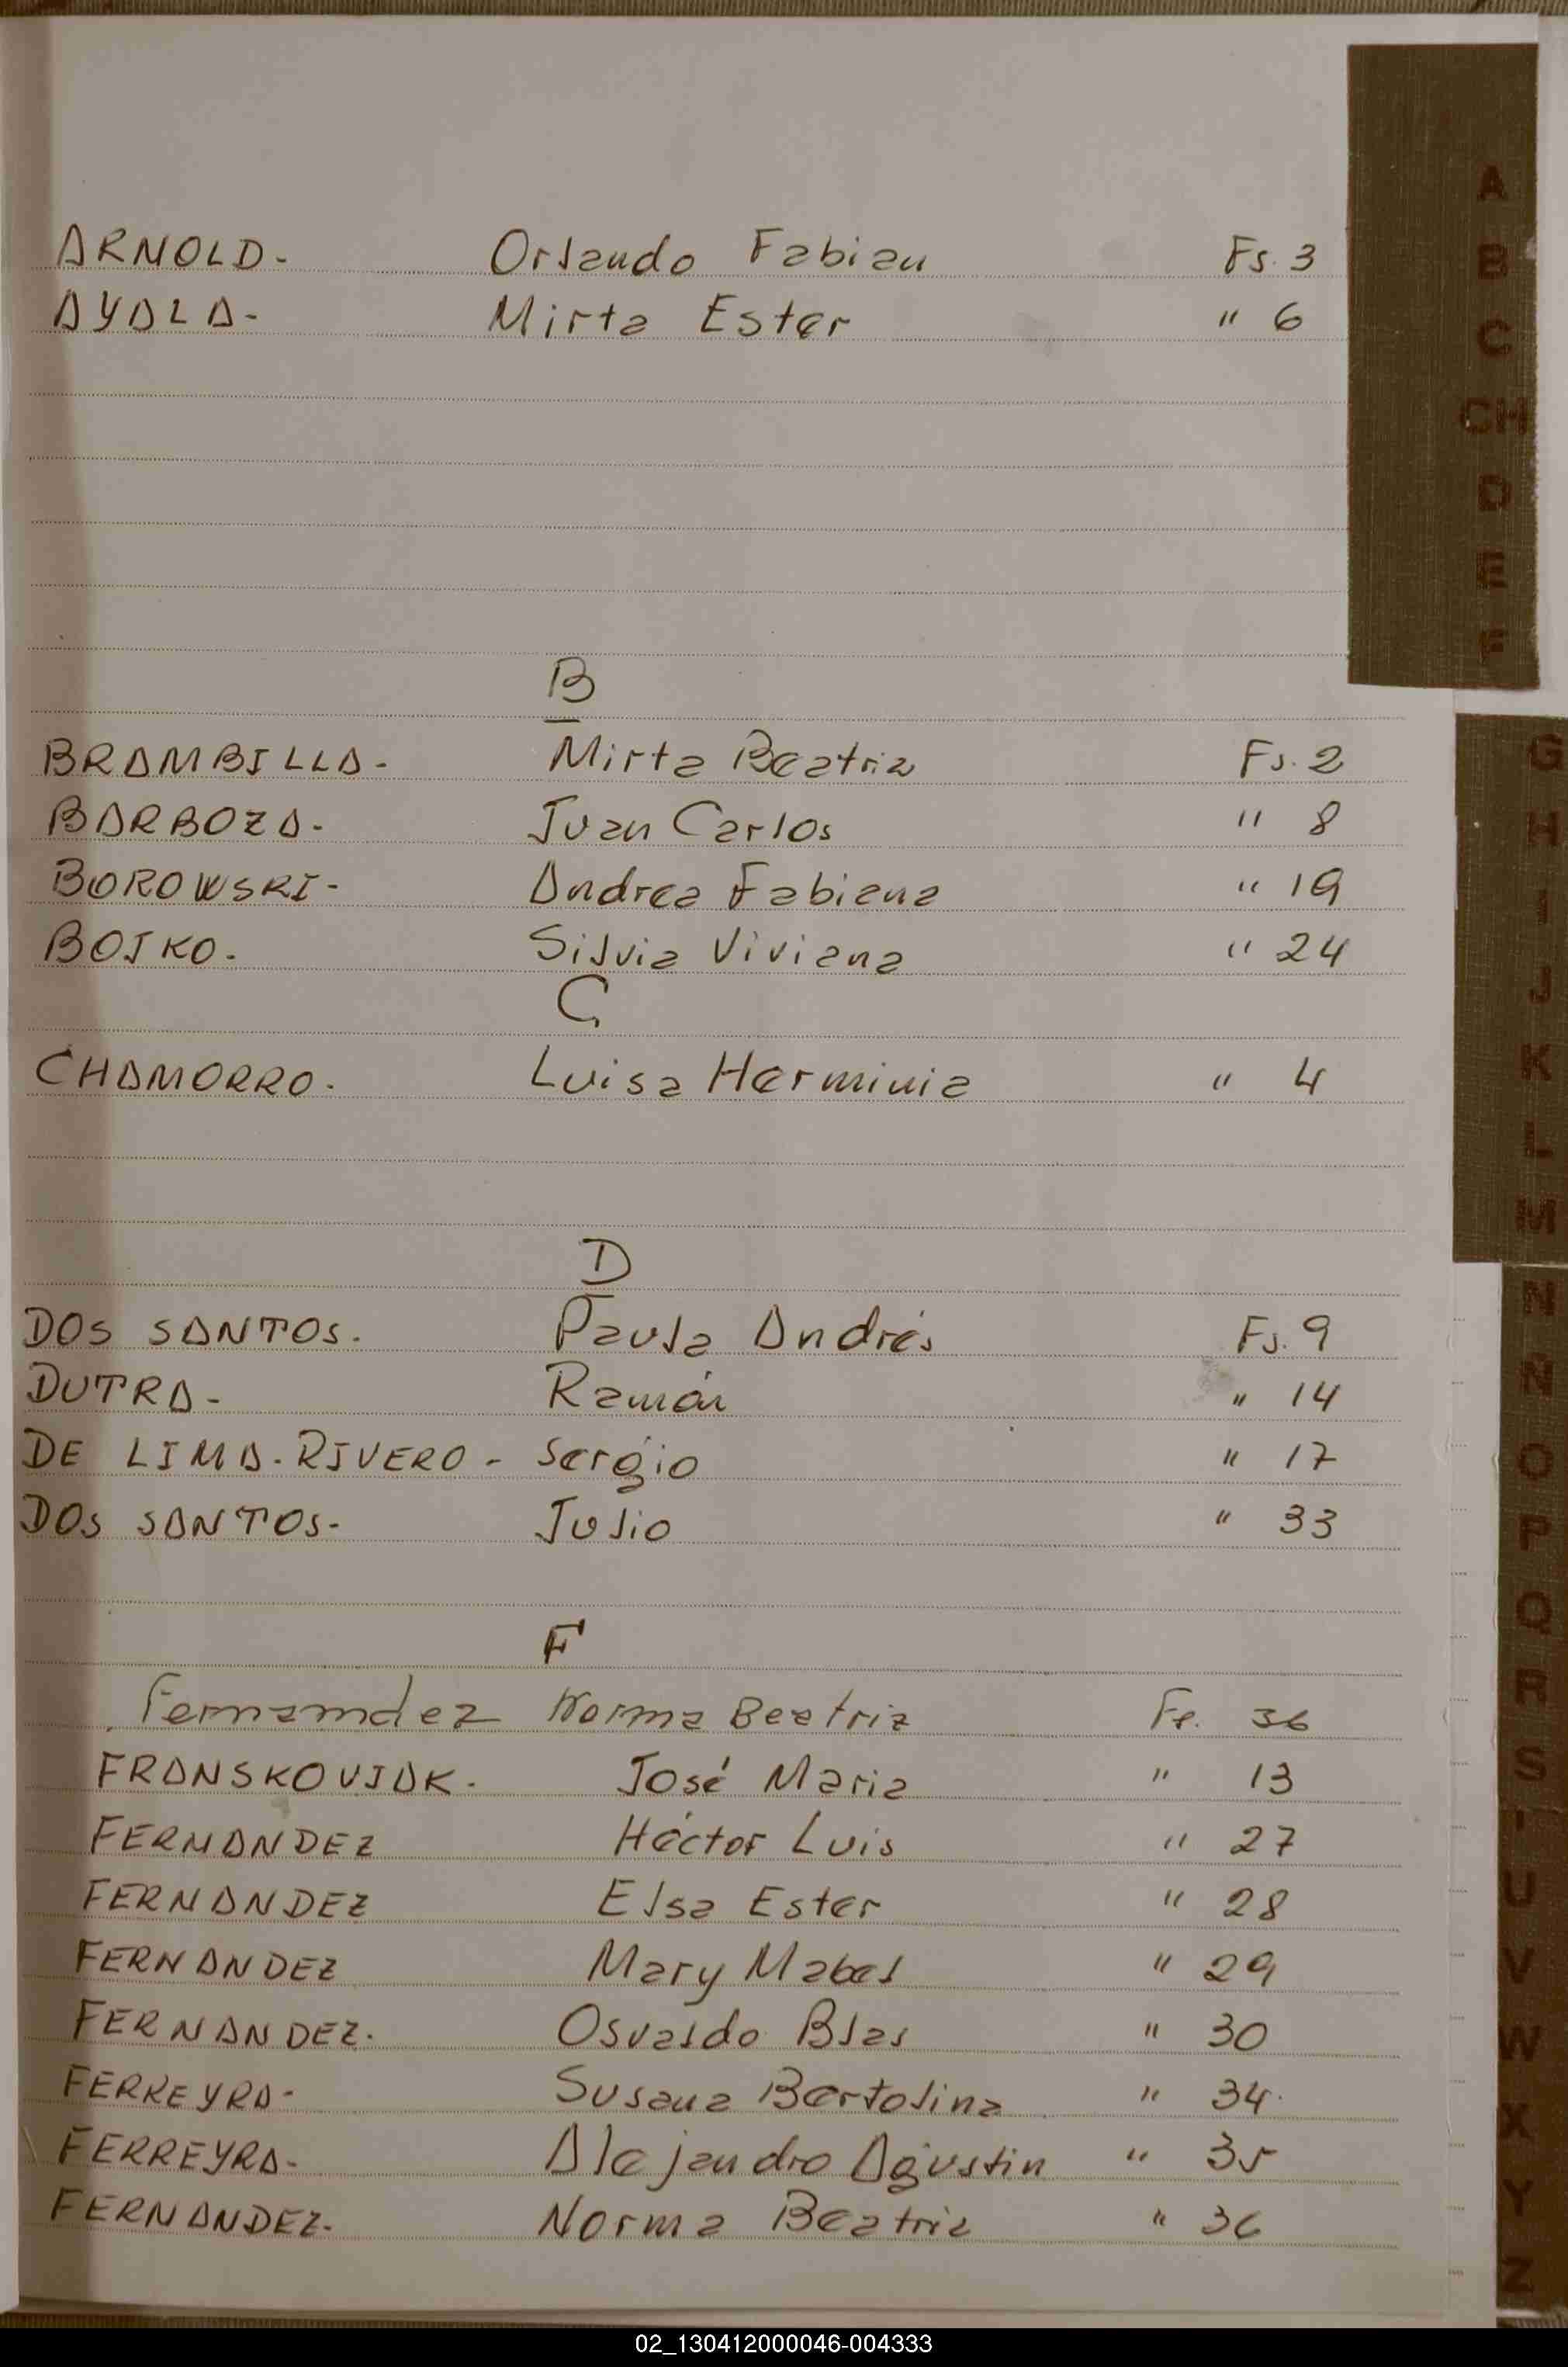 ARNOLD- Orlando Fabian Fs. 3
AYALA- Mirta Ester " 6
B
BRAMBILLA- Mirta Beatriz Fs. 2
BARBOZA- Juan Carlos " 8
BOROWSKI- Andrea Fabiana " 19
BOIKO- Silvia Viviana " 24
C
CHAMORRO. Luisa Herminia " 4
D
DOS SANTOS. Paula Andrés Fs. 9
DUTRA- Ramón " 14
DE LIMA-RIVERO- Sergio " 17
DOS SANTOS- Julio " 33
F
Fernandez Norma Beatriz Fs. 36
FRANSKOVIAK- José Maria " 13
FERNANDEZ Héctor Luis " 27
FERNANDEZ Elsa Ester " 28
FERNANDEZ Mary Mabel " 29
FERNANDEZ. Osvaldo Blas " 30
FERREYRA- Susana Bertolina " 34.
FERREYRA- Alejandro Agustin " 35
FERNANDEZ- Norma Beatriz " 36
A
B
C
CH
D
E
F
G
H
I
J
K
L
M
N
Ñ
O
P
Q
R
S
T
U
V
W
X
Y
Z
02_130412000046-004333